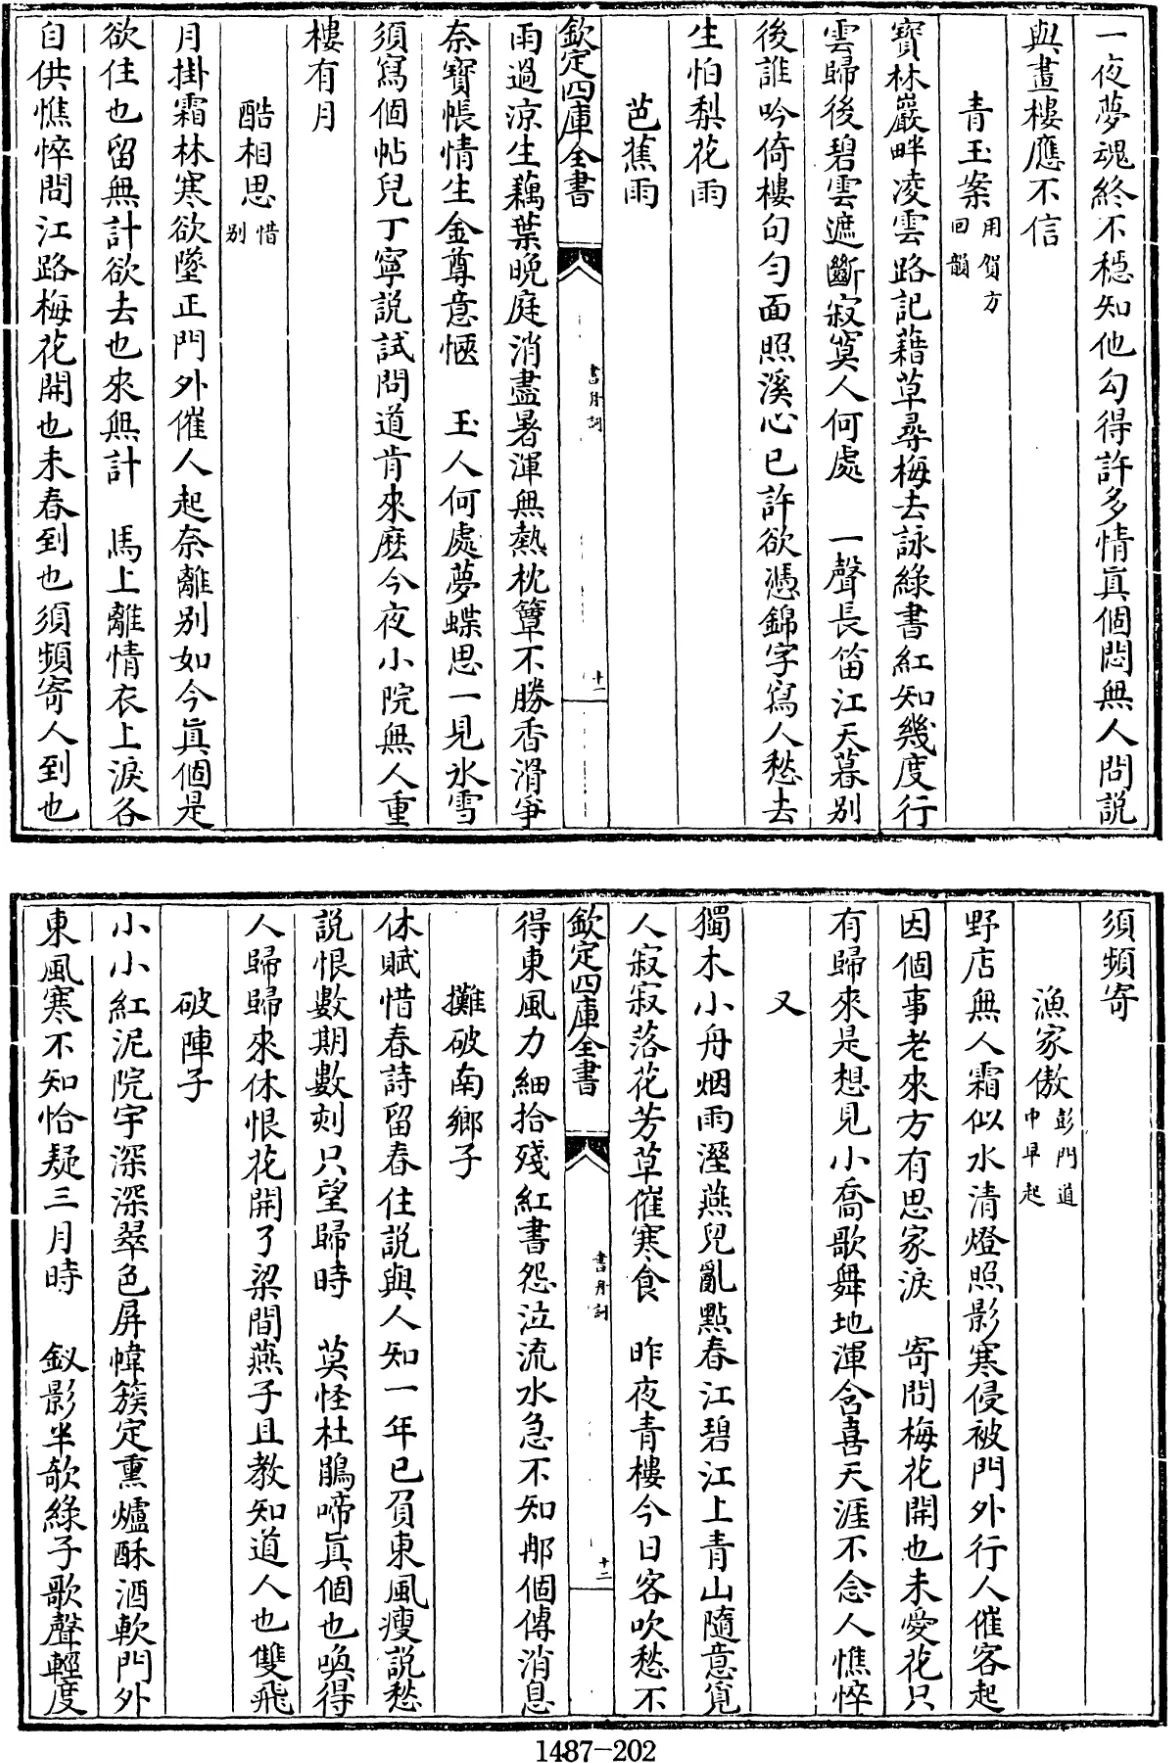 一夜夢魂終不穩知他勾得許多情真個悶無人問說
與畫樓應不信
青玉案用賀方回韻
寶林巖畔凌雲路記藉草尋梅去詠綠書紅知幾度行
雲歸後碧雲遮斷寂寞人何處　一聲長笛江天暮別
後誰吟倚樓句匀面照溪心已許欲憑錦字寫人愁去
生怕梨花雨
芭蕉雨
欽定四庫全書
書舟詞
十一
雨過涼生藕葉晚庭消盡暑渾無熱枕簟不勝香滑爭
奈寶帳情生金尊意愜　玉人何處夢蝶思一見冰雪
須寫個帖兒丁寧說試問道肯來麽今夜小院無人重
樓有月
酷相思惜別
月掛霜林寒欲墜正門外催人起奈離別如今真個是
欲住也留無計欲去也來無計　馬上離情衣上淚各
自供憔悴問江路梅花開也未春到也須頻寄人到也
須頻寄
漁家傲彭門道中早起
野店無人霜似水清燈照影寒侵被門外行人催客起
因個事老來方有思家淚　寄問梅花開也未愛花只
有歸來是想見小喬歌舞地渾含喜天涯不念人憔悴
又
獨木小舟烟雨溼燕兒亂點春江碧江上青山隨意覓
人寂寂落花芳草催寒食　昨夜青樓今日客吹愁不
欽定四庫全書
書舟詞
十二
得東風力細拾殘紅書怨泣流水急不知那個傳消息
攤破南鄉子
休賦惜春詩留春住說與人知一年已負東風瘦說愁
說恨數期數刻只望歸時　莫怪杜鵑啼真個也喚得
人歸歸來休恨花開了梁間燕子且教知道人也雙飛
破陣子
小小紅泥院宇深深翠色屏幃簇定熏爐酥酒軟門外
東風寒不知恰疑三月時　釵影半欹綠子歌聲輕度
1487-202